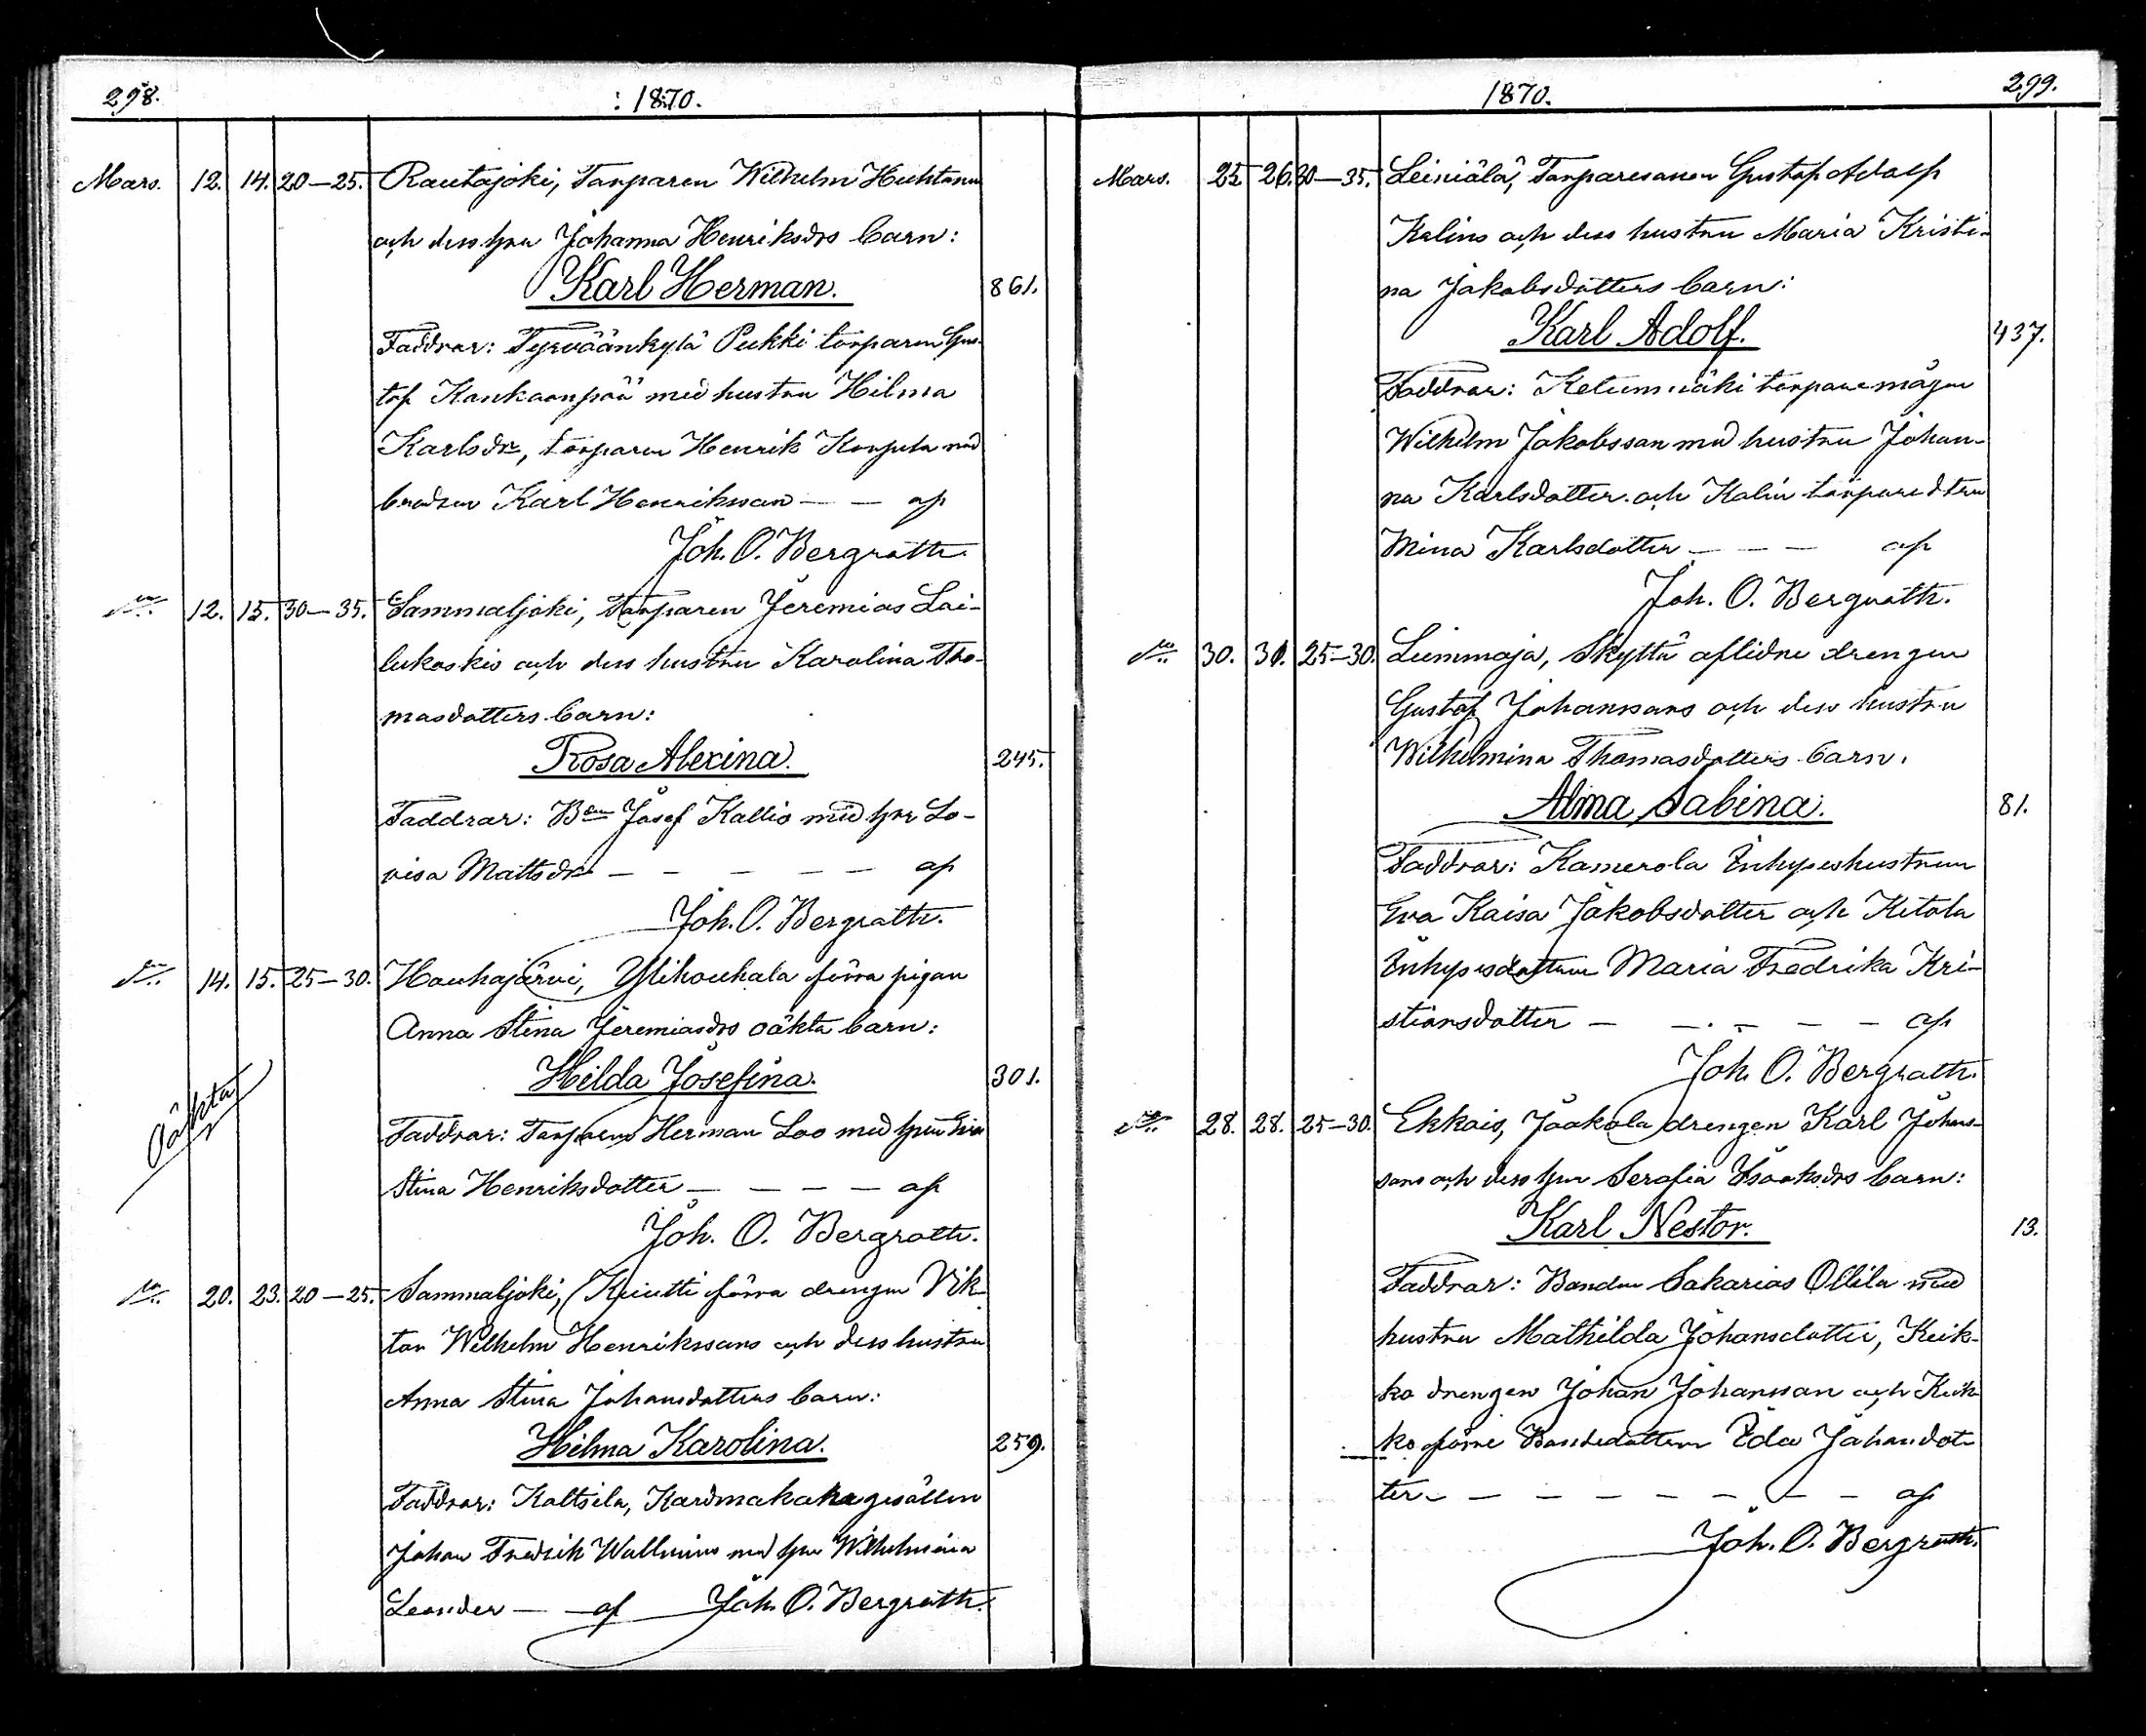 298. : 1870.
Mars. 12. 14. 20—25. Rautajoki, Torparen Wilhelm Huhtanu
och dess hru Johanna Henriksdrs barn:
Karl Herman. 861.
Faddrar: Tyrväänkylä Pukki torparen Gus-
taf Kankaanpää med hustru Hilma
Karlsdr, torparen Henrik Korpela med
Karl Henriksson — — af
Joh. O. Bergroth.
12. 15. 30—35. Sammaljoki, Torparen Jeremias Lai-
lukoskis och dess hustru Karolina Tho-
masdotters barn:
Rosa Alexina. 245.
Faddrar: Bdn Josef Kallio med hru Lo-
visa Mattsdr — — — — — af
Joh. O. Bergroth.
14. 15. 25—30. Houhajärvi, Ylihouhala förra pigan
Anna Stina Jeremiasdrs oäkta barn:
Hilda Josefina. 301.
Oäkta
Faddrar: Torparen Herman Loo med hrun Eva
Stina Henriksdotter — — — — af
Joh. O. Bergroth.
20. 23. 20—25. Sammaljoki, förra drengen Vik-
tor Wilhelm Henrikssons och dess hustru
Anna Stina Johansdotters barn:
Hilma Karolina. 259.
Faddrar: Kaltsila, Kardmakaregesällen
Johan Fredrik Wallenius med hru Wilhelmina
Leander — — af Joh. O. Bergroth.
1870. 299.
Mars. 25. 26. 30—35. Leiniälä, Torparesonen Gustaf Adolf
Kalins och dess hustru Maria Kristi-
na Jakobsdotters barn:
Karl Adolf. 437.
Faddrar: Ketunmäki torparemågen
Wilhelm Jakobsson med hustru Johan-
na Karlsdotter och Kalin torparedtrn
Mina Karlsdotter — — — af
Joh. O. Bergroth.
30. 31. 25—30. Liemmaja, Skyttä aflidne drengen
Gustaf Johanssons och dess hustru
Wilhelmina Thomasdotters barn.
Alma Sabina. 81.
Faddrar: Kamerola Inhyseshustrun
Eva Kaisa Jakobsdotter och Ketola
Inhysesdottern Maria Fredrika Kri-
stiansdotter — — — — — af
Joh. O. Bergroth.
28. 28. 25—30. Ekkois, Jaakola drengen Karl Johans-
sons och dess hru Serafia Isaaksdrs barn:
Karl Nestor. 13.
Faddrar: Bonden Sakarias Ollila med
hustru Mathilda Johansdotter, Keik-
ko drengen Johan Johansson och Keik-
ko förre Bondedottern Eda Johansdot-
ter — — — — — — — — af
Joh. O. Bergroth.